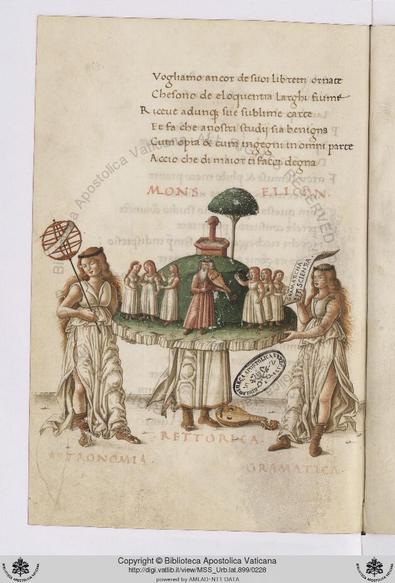 Vogliamo ancor de suoi libretti ornate
Che sono de eloquentia larghi fiumi
Riceve adunq; sue sublime carte
Et fa che a nostri studij sia benigna
Cum opra & cum ingegni in omni parte
Accio che di maior ti facci degna
MONS ELICON
GRAMATICHA
SCIENTIA
BIBLIOTECA APOSTOLICA VATICANA
RETTORICA
ASTRONOMIA
GRAMATICA
Copyright © Biblioteca Apostolica Vaticana
http://digi.vatlib.it/view/MSS_Urb.lat.899/0228
powered by AMLAD-NTT DATA